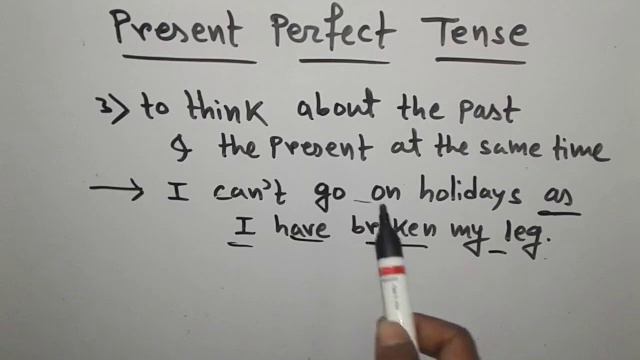 Present Perfect Tense
3) to think about the past
& the present at the same time
→ I can't go on holidays as
I have broken my leg.